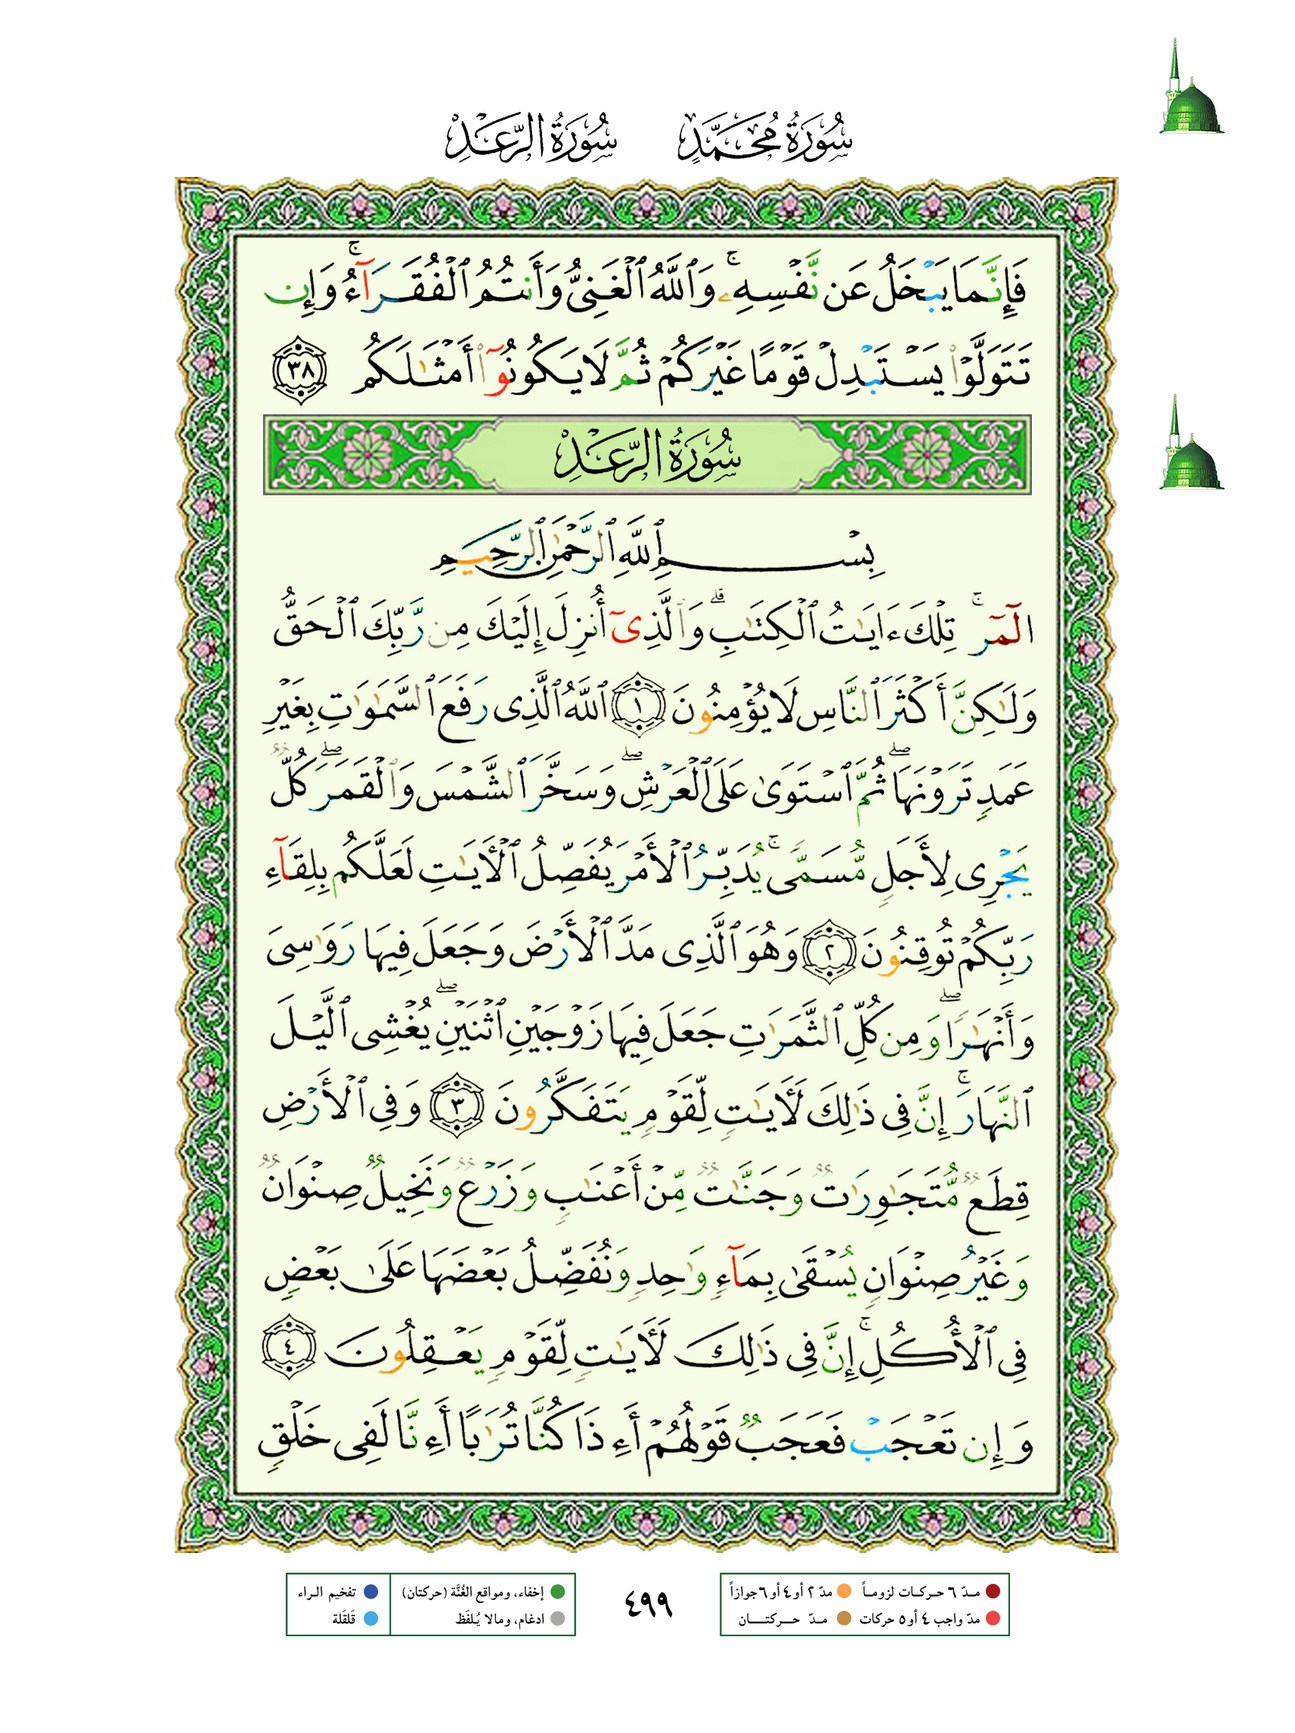 سُورَةُ مُحَمَّدٍ سُورَةُ الرَّعْدِ
فَإِنَّمَا يَبْخَلُ عَن نَّفْسِهِۦ ۚ وَٱللَّهُ ٱلْغَنِىُّ وَأَنتُمُ ٱلْفُقَرَآءُ ۚ وَإِن
تَتَوَلَّوْا۟ يَسْتَبْدِلْ قَوْمًا غَيْرَكُمْ ثُمَّ لَا يَكُونُوٓا۟ أَمْثَـٰلَكُم ٣٨
سُورَةُ الرَّعْدِ
بِسْمِ ٱللَّهِ ٱلرَّحْمَـٰنِ ٱلرَّحِيمِ
الٓمٓر ۚ تِلْكَ ءَايَـٰتُ ٱلْكِتَـٰبِ ۗ وَٱلَّذِىٓ أُنزِلَ إِلَيْكَ مِن رَّبِّكَ ٱلْحَقُّ
وَلَـٰكِنَّ أَكْثَرَ ٱلنَّاسِ لَا يُؤْمِنُونَ ١ ٱللَّهُ ٱلَّذِى رَفَعَ ٱلسَّمَـٰوَٰتِ بِغَيْرِ
عَمَدٍ تَرَوْنَهَا ۖ ثُمَّ ٱسْتَوَىٰ عَلَى ٱلْعَرْشِ ۖ وَسَخَّرَ ٱلشَّمْسَ وَٱلْقَمَرَ ۖ كُلٌّ
يَجْرِى لِأَجَلٍ مُّسَمًّى ۚ يُدَبِّرُ ٱلْأَمْرَ يُفَصِّلُ ٱلْـَٔايَـٰتِ لَعَلَّكُم بِلِقَآءِ
رَبِّكُمْ تُوقِنُونَ ٢ وَهُوَ ٱلَّذِى مَدَّ ٱلْأَرْضَ وَجَعَلَ فِيهَا رَوَٰسِىَ
وَأَنْهَـٰرًا ۖ وَمِن كُلِّ ٱلثَّمَرَٰتِ جَعَلَ فِيهَا زَوْجَيْنِ ٱثْنَيْنِ ۖ يُغْشِى ٱلَّيْلَ
ٱلنَّهَارَ ۚ إِنَّ فِى ذَٰلِكَ لَـَٔايَـٰتٍ لِّقَوْمٍ يَتَفَكَّرُونَ ٣ وَفِى ٱلْأَرْضِ
قِطَعٌ مُّتَجَـٰوِرَٰتٌ وَجَنَّـٰتٌ مِّنْ أَعْنَـٰبٍ وَزَرْعٌ وَنَخِيلٌ صِنْوَانٌ
وَغَيْرُ صِنْوَانٍ يُسْقَىٰ بِمَآءٍ وَٰحِدٍ وَنُفَضِّلُ بَعْضَهَا عَلَىٰ بَعْضٍ
فِى ٱلْأُكُلِ ۚ إِنَّ فِى ذَٰلِكَ لَـَٔايَـٰتٍ لِّقَوْمٍ يَعْقِلُونَ ٤
وَإِن تَعْجَبْ فَعَجَبٌ قَوْلُهُمْ أَءِذَا كُنَّا تُرَٰبًا أَءِنَّا لَفِى خَلْقٍ
مـدّ ٦ حـركـات لزومـاً مدّ ٢ أو ٤ أو ٦ جوازاً
مدّ واجب ٤ أو ٥ حركات مـدّ حـــركتـــــان
٤٩٩
إخفاء، ومواقع الغُنَّة (حركتان) تفخيم الـراء
ادغام، ومالا يُـلفَظ قَلقَلة